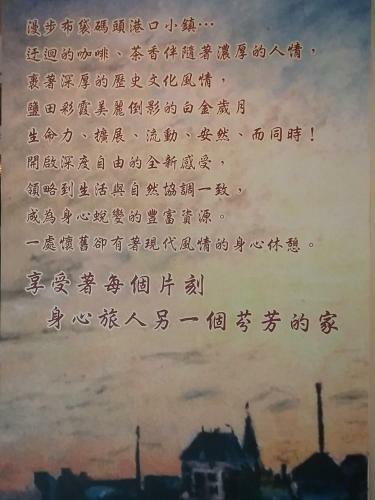 漫步布袋碼頭港口小鎮…
迂迴的咖啡、茶香伴隨著濃厚的人情，
裹著深厚的歷史文化風情，
鹽田彩霞美麗倒影的白金歲月
生命力、擴展、流動、安然、而同時！
開啟深度自由的全新感受，
領略到生活與自然協調一致，
成為身心蛻變的豐富資源。
一處懷舊卻有著現代風情的身心休憩。
享受著每個片刻
身心旅人另一個芬芳的家